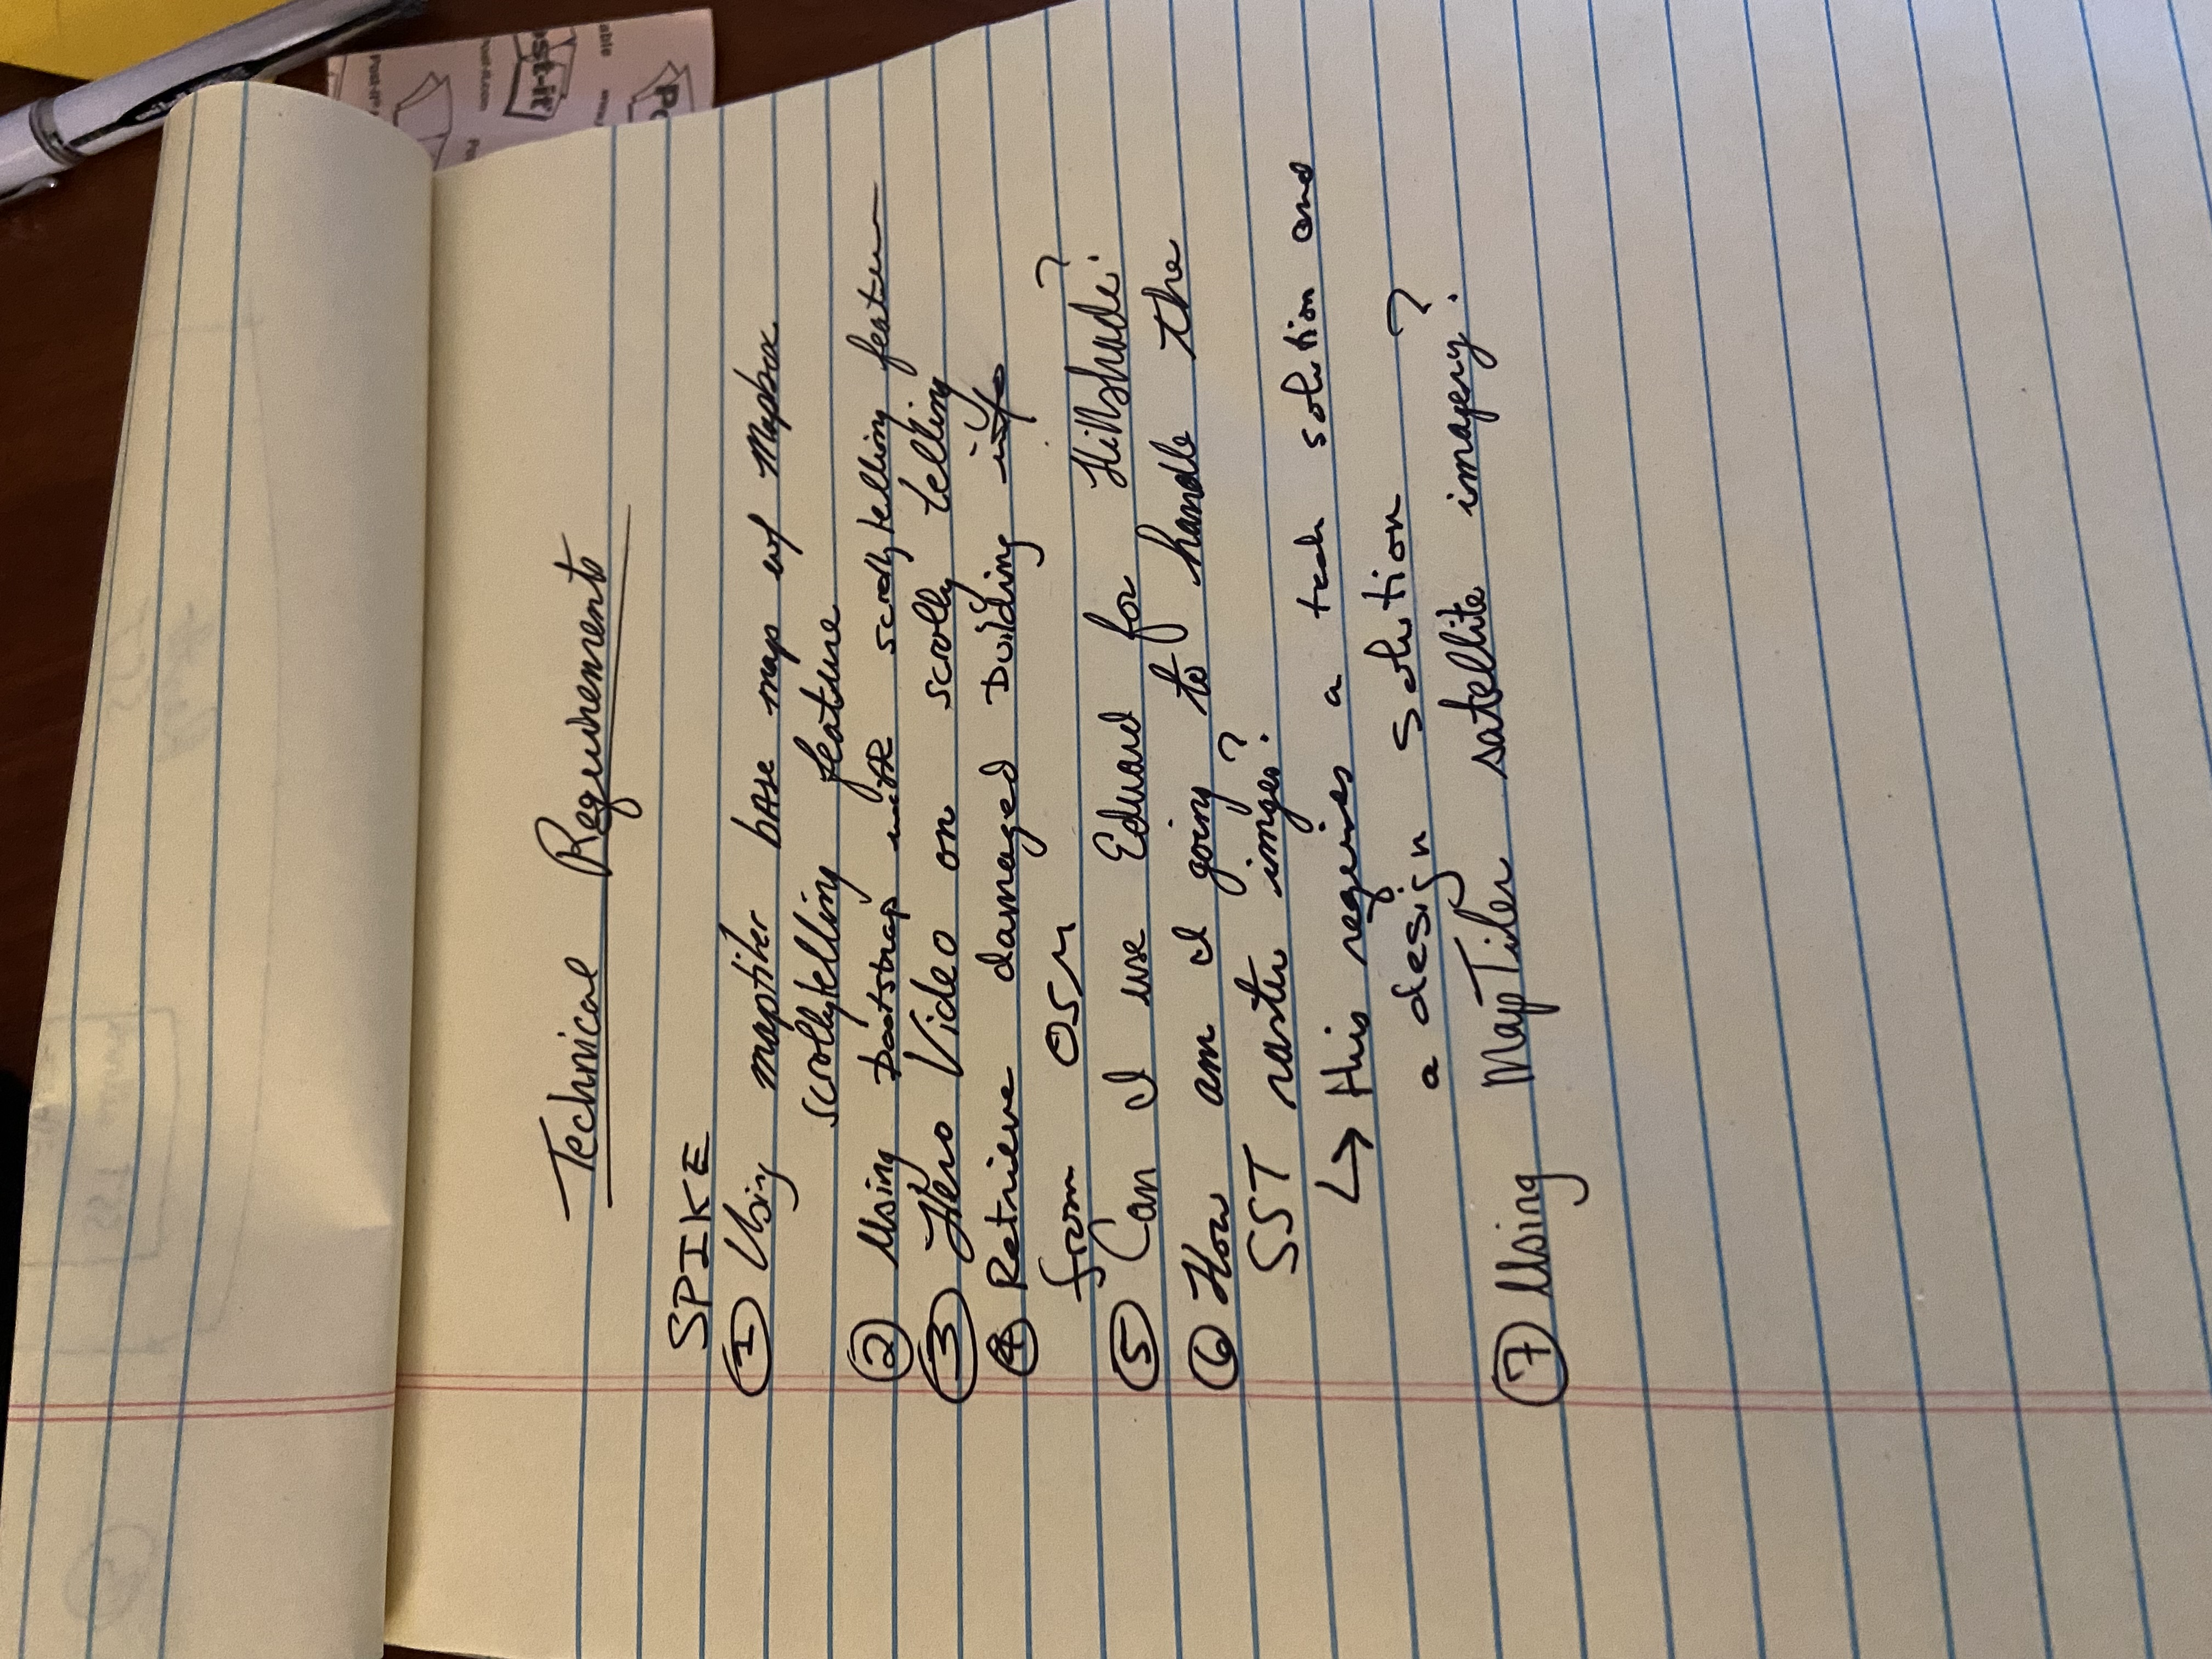 Technical Requirements
SPIKE
① Using maptiler base map w/ Mapbox
scrollytelling feature
② Using bootstrap with scrollytelling feature
③ Hero Video on scrolly telling
④ Retrieve damaged building info
from OSM
⑤ Can I use Eduard for Hillshade?
⑥ How am I going to handle the
SST raster imges?
↳ this requires a tech solution and
a design solution
⑦ Using MapTiler satellite imagery?
Post-it